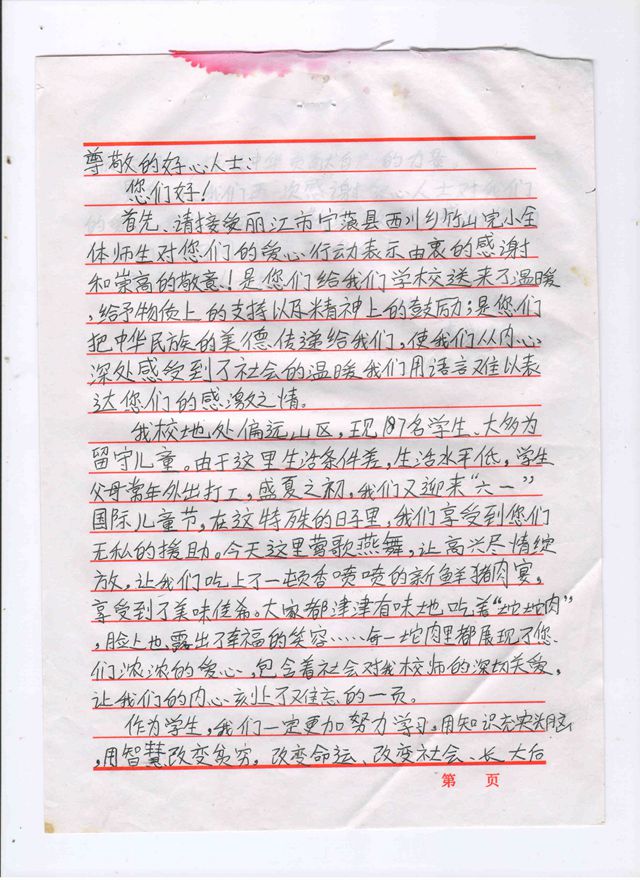 尊敬的好心人士:
您们好!
首先、请接受丽江市宁蒗县西川乡竹山完小全
体师生对您们的爱心行动表示由衷的感谢
和崇高的敬意!是您们给我们学校送来了温暖
,给予物质上的支持以及精神上的鼓励;是您们
把中华民族的美德传递给我们,使我们从内心
深处感受到了社会的温暖我们用语言难以表
达您们的感激之情。
我校地处偏远山区,现187名学生、大多为
留守儿童。由于这里生活条件差,生活水平低,学生
父母常年外出打工,盛夏之初,我们又迎来“六一”
国际儿童节,在这特殊的日子里,我们享受到您们
无私的援助。今天这里莺歌燕舞,让高兴尽情绽
放,让我们吃上了一顿香喷喷的新鲜猪肉宴,
享受到了美味佳希。大家都津津有味地吃着“坨坨肉”
,脸上也露出了幸福的笑容……每一坨肉里都展现了您
们浓浓的爱心,包含着社会对我校师的深切关爱,
让我们的内心刻上了难忘的一页。
作为学生,我们一定更加努力学习,用知识充实头脑
,用智慧改变贫穷,改变命运、改变社会、长大后
第 页